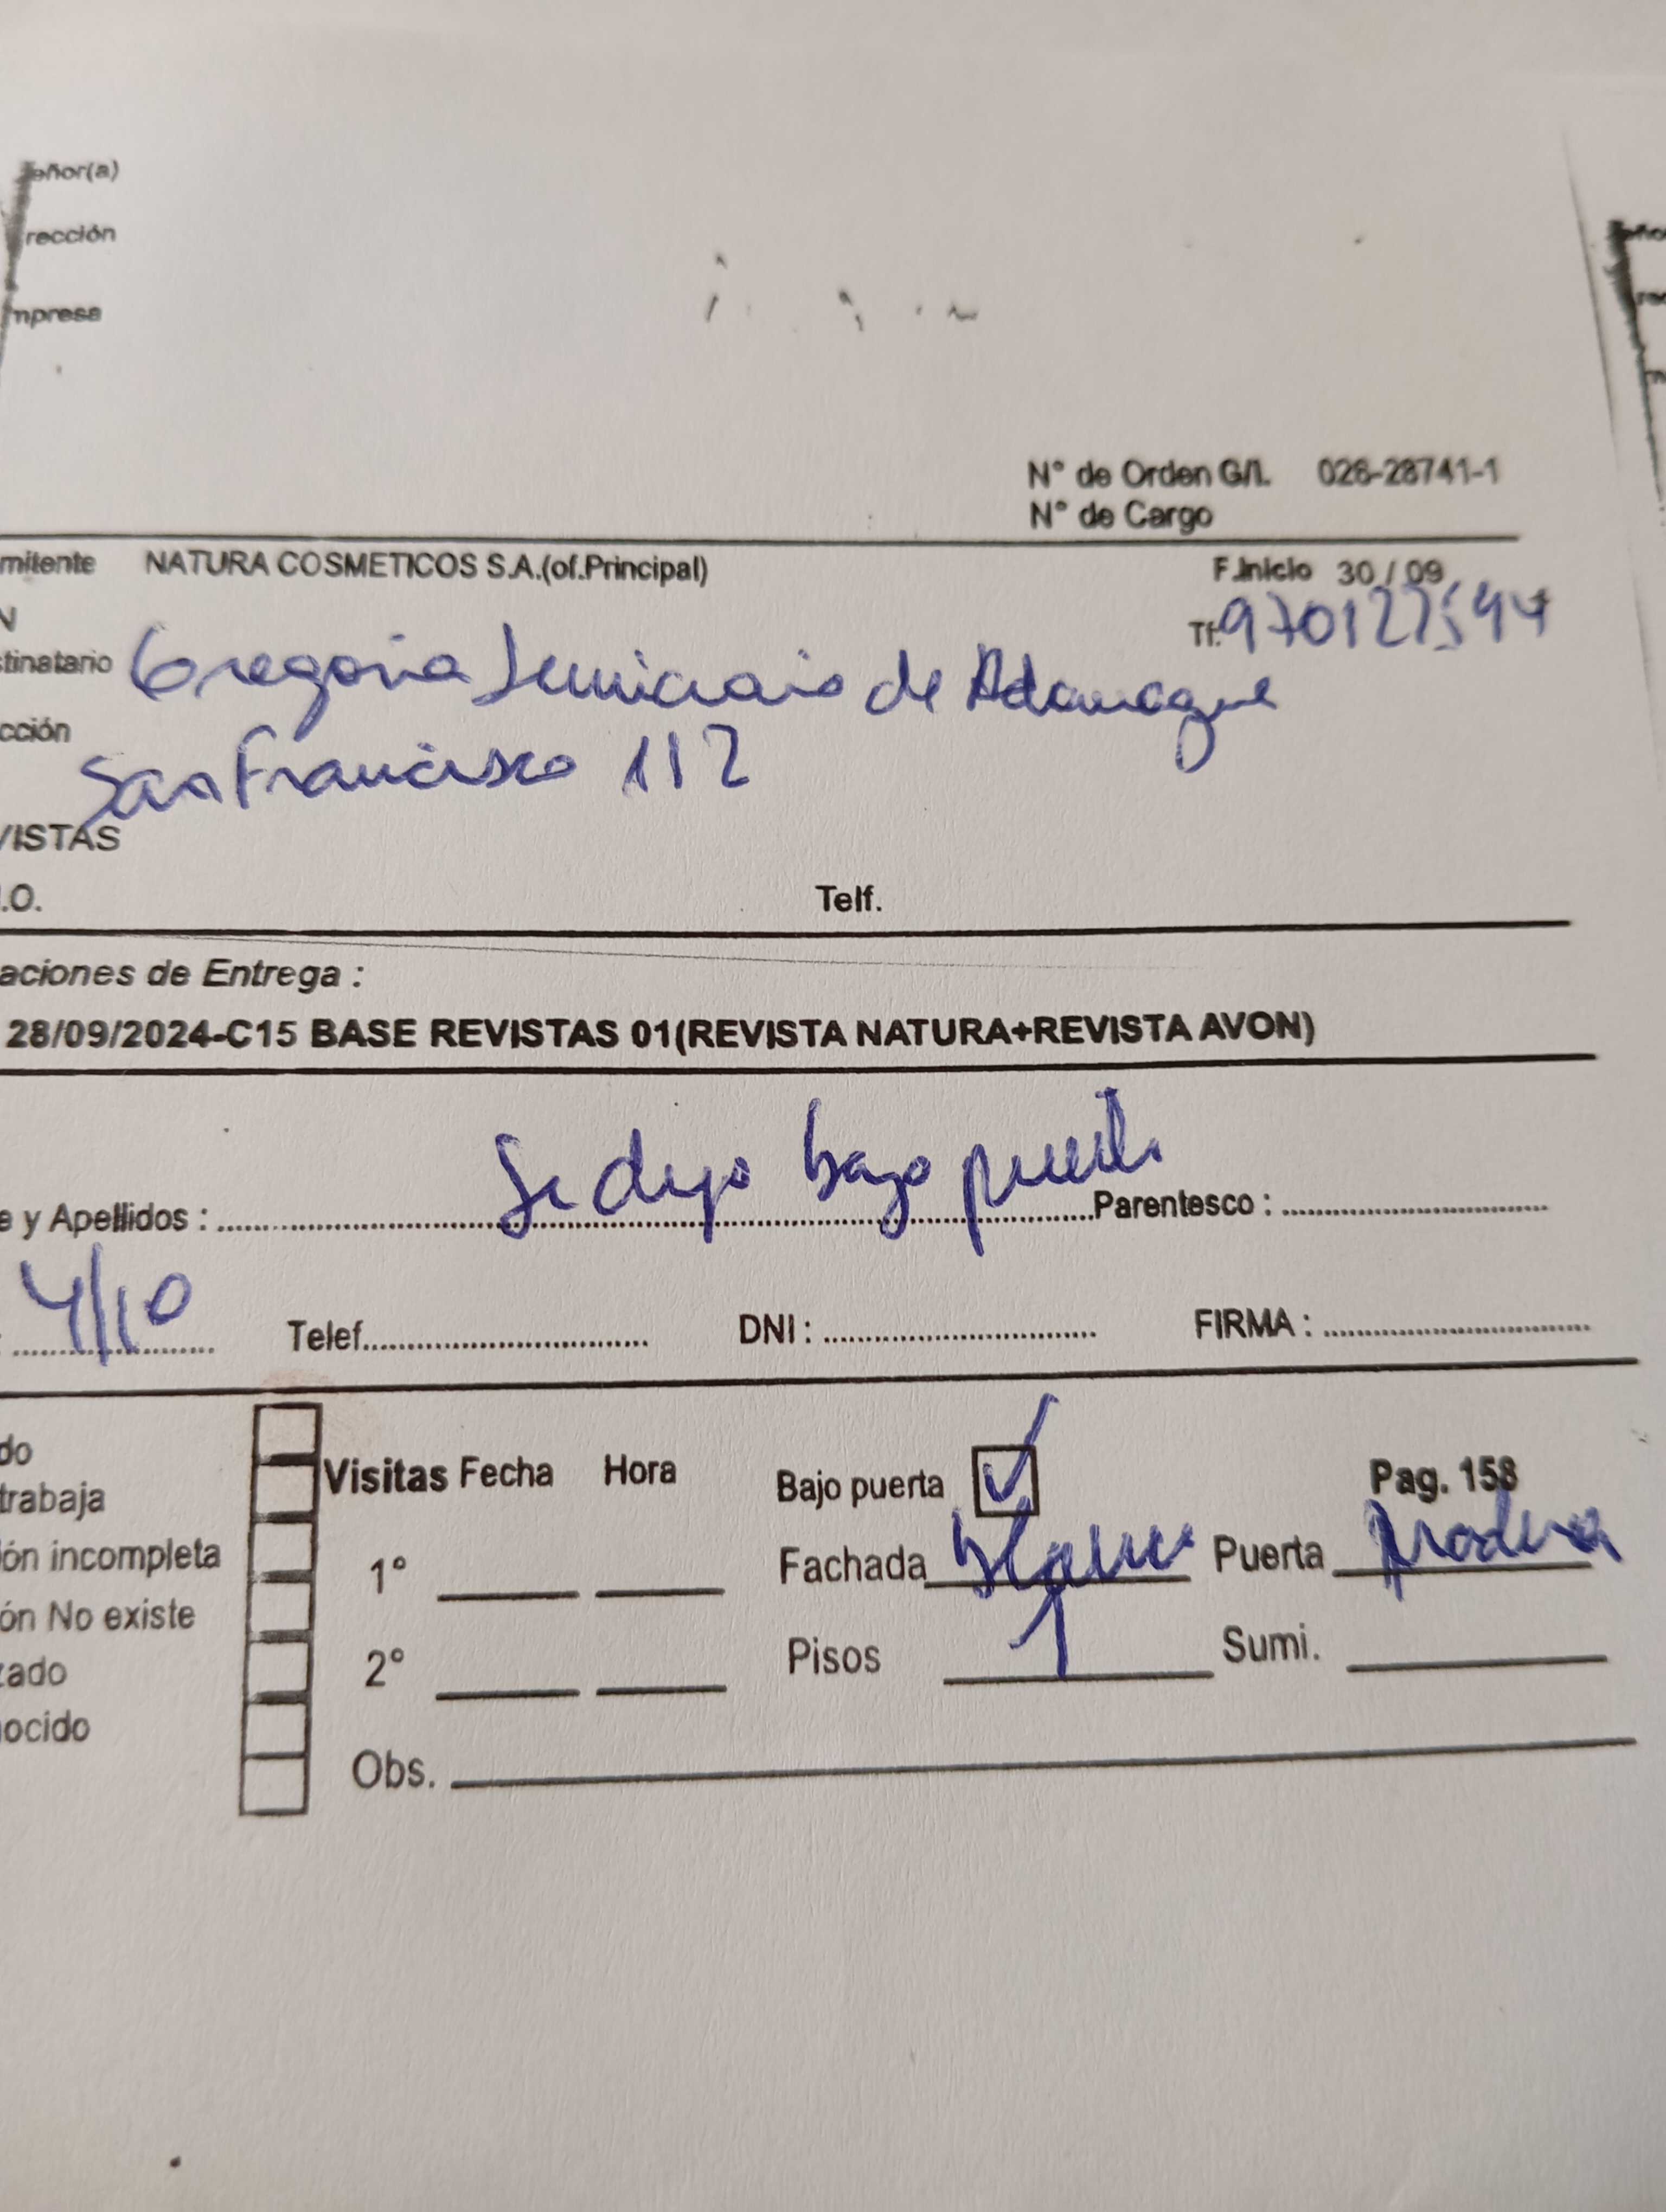 eñor(a)
rección
mpresa
N° de Orden G/I. 026-28741-1
N° de Cargo
mitente NATURA COSMETICOS S.A.(of.Principal) F.Inicio 30 / 09
N Tf: 970127544
tinatario Gregoria de Adanaque
cción San Francisco 112
VISTAS
.O. Telf.
aciones de Entrega :
28/09/2024-C15 BASE REVISTAS 01(REVISTA NATURA+REVISTA AVON)
Se dejo bajo puerta
e y Apellidos : Parentesco :
4/10 Telef. DNI : FIRMA :
do
Visitas Fecha Hora Bajo puerta ✓ Pag. 158
trabaja
ón incompleta 1° Fachada blanco Puerta madera
ón No existe
zado 2° Pisos 1 Sumi.
ocido
Obs.